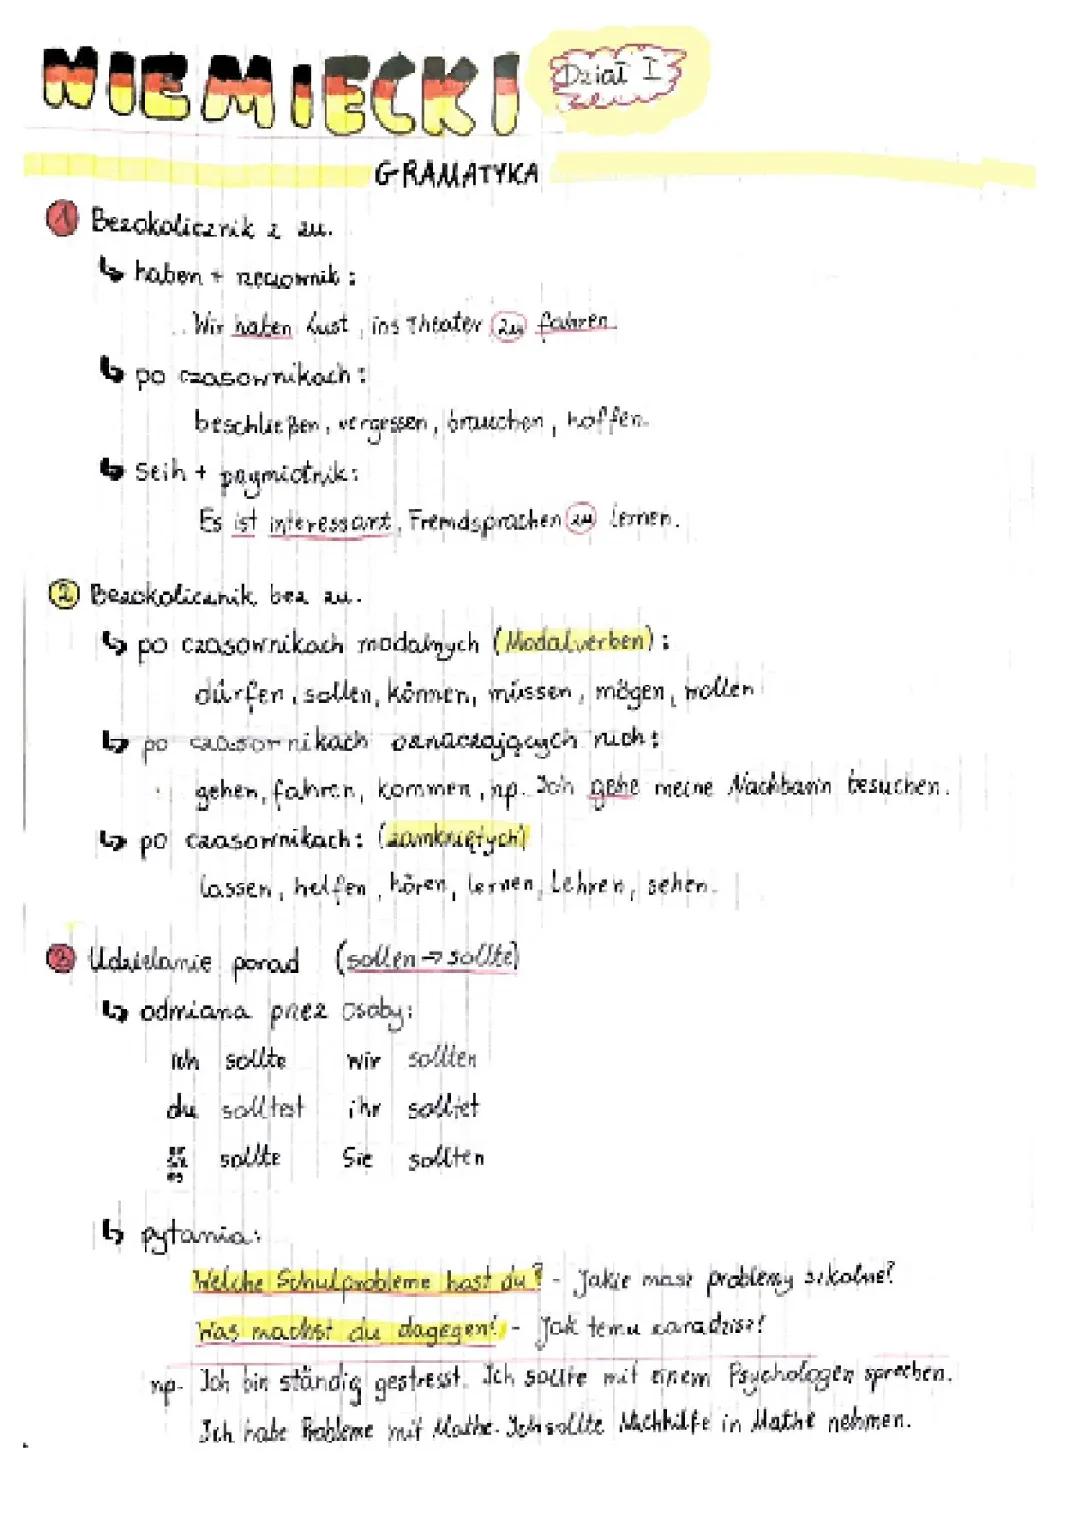 NIEMIECKI Dział I
GRAMATYKA
1 Bezokolicznik z zu.
↳ haben + rzeczownik:
Wir haben Lust, ins Theater zu fahren.
↳ po czasownikach:
beschließen, vergessen, brauchen, hoffen.
↳ sein + przymiotnik:
Es ist interessant, Fremdsprachen zu lernen.
2 Bezokolicznik bez zu.
↳ po czasownikach modalnych (Modalverben):
dürfen, sollen, können, müssen, mögen, wollen
↳ po czasownikach oznaczających ruch:
gehen, fahren, kommen, np. Ich gehe meine Nachbarin besuchen.
↳ po czasownikach: (zamkniętych)
lassen, helfen, hören, lernen, lehren, sehen.
3 Udzielanie porad (sollen → sollte)
↳ odmiana przez osoby:
ich sollte wir sollten
du solltest ihr solltet
er sie es sollte Sie sollten
↳ pytania:
Welche Schulprobleme hast du? - Jakie masz problemy szkolne?
Was machst du dagegen? - Jak temu zaradzisz?
np. Ich bin ständig gestresst. Ich sollte mit einem Psychologen sprechen.
Ich habe Probleme mit Mathe. Ich sollte Nachhilfe in Mathe nehmen.